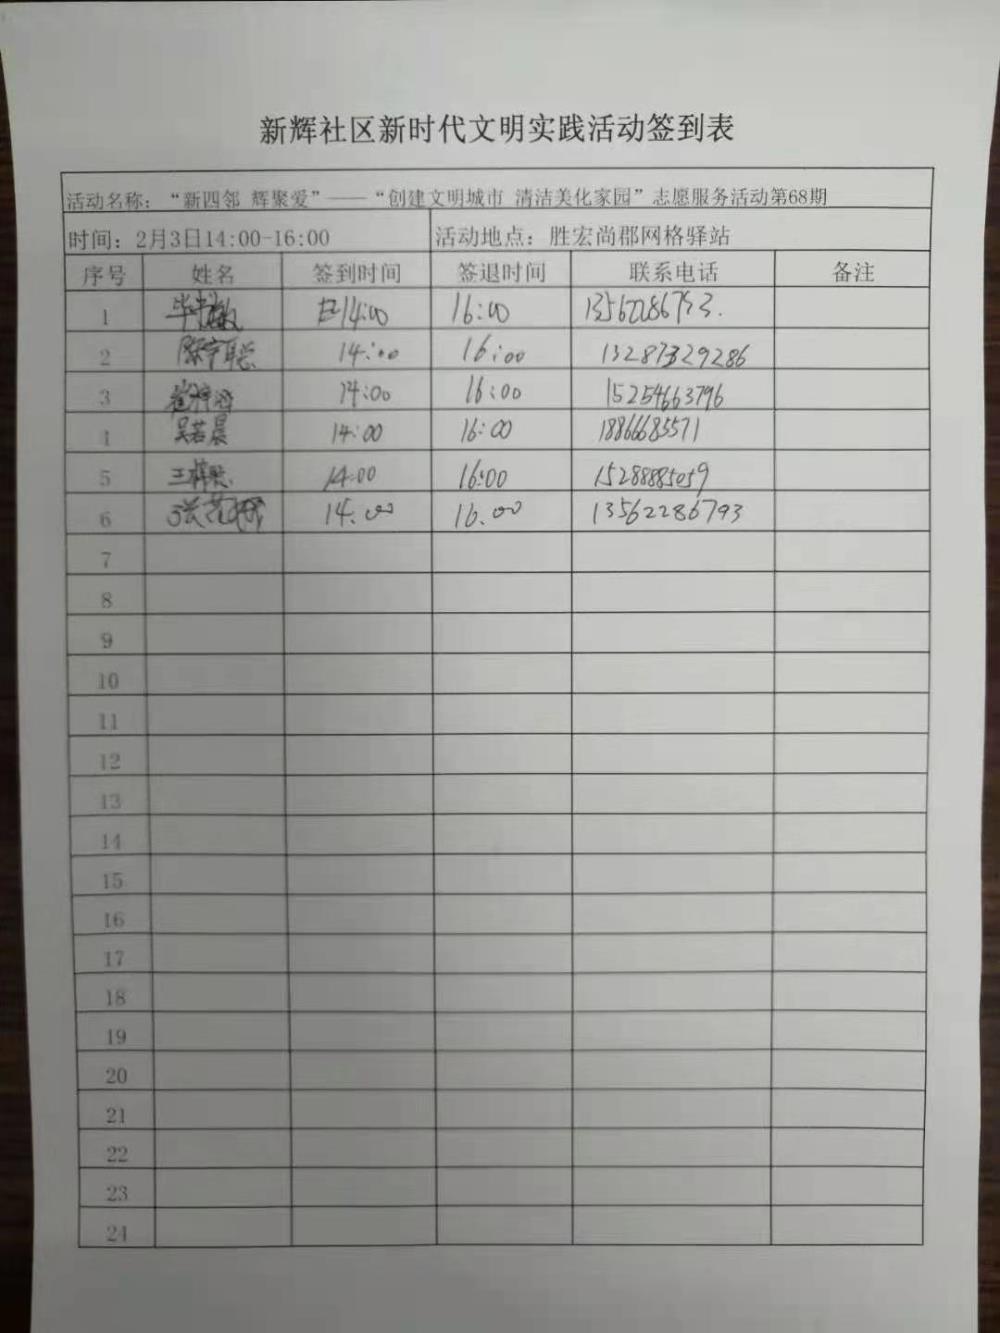 新辉社区新时代文明实践活动签到表
活动名称：“新四邻 辉聚爱”——“创建文明城市 清洁美化家园”志愿服务活动第68期
时间：2月3日14:00-16:00 活动地点：胜宏尚郡网格驿站
序号 姓名 签到时间 签退时间 联系电话 备注
1 14:00 16:00
2 14:00 16:00 13287329286
3 14:00 16:00 15254663796
4 吴若晨 14:00 16:00 18866685571
5 14:00 16:00 15288885059
6 14:00 16:00 13562286793
7
8
9
10
11
12
13
14
15
16
17
18
19
20
21
22
23
24